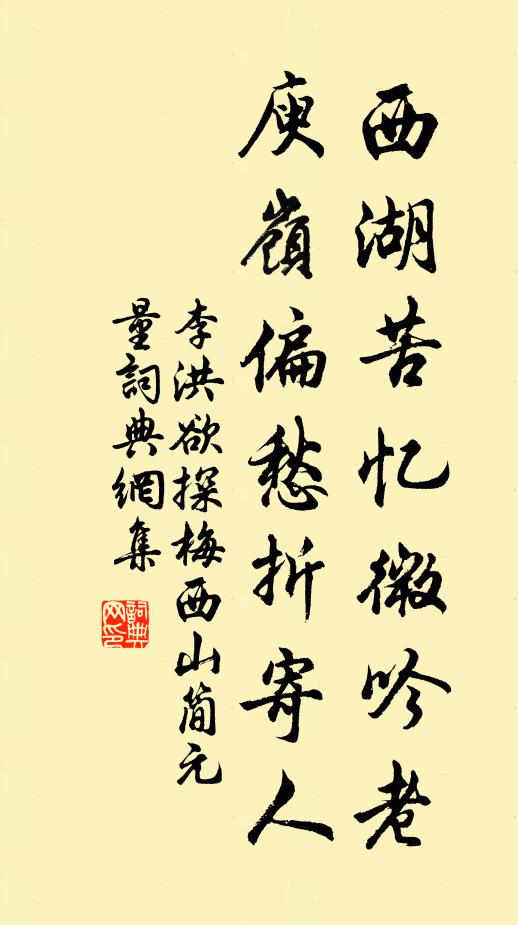 西湖苦忆微吟老
庾嶺偏愁折寄人
李洪欲探梅西山簡元
量詞典網集
詞典
网印